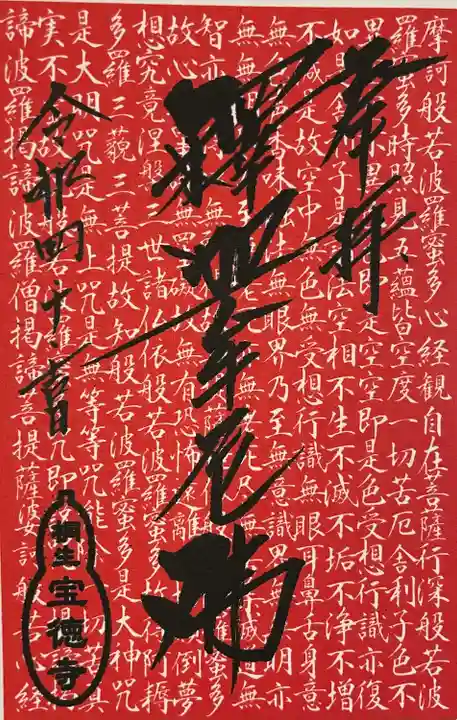 奉拝
釋迦牟尼佛
令和四
吉日
桐生
宝徳寺
摩訶般若波羅蜜多心経観自在菩薩行深般若波
羅蜜多時照見五蘊皆空度一切苦厄舎利子色不
異空不異色即是空空即是色受想行識亦復
如是舎利子是諸法空相不生不滅不垢不浄不増
不減是故空中無色無受想行識無眼耳鼻舌身意
無色声香味触法無眼界乃至無意識界無無明亦
無無明乃至無老死尽無苦集滅道無
智亦無得般若波羅蜜多
故心無罣礙故無有恐怖遠離一切顛倒夢
想究竟涅槃三世諸仏依般若波羅蜜多故得阿耨
多羅三藐三菩提故知般若波羅蜜多是大神呪
是大明呪是無上呪是無等等呪能除一切苦真
実不虚故説般若波羅蜜多呪即説呪曰
諦波羅掲諦波羅僧掲諦菩提薩婆訶般若心経